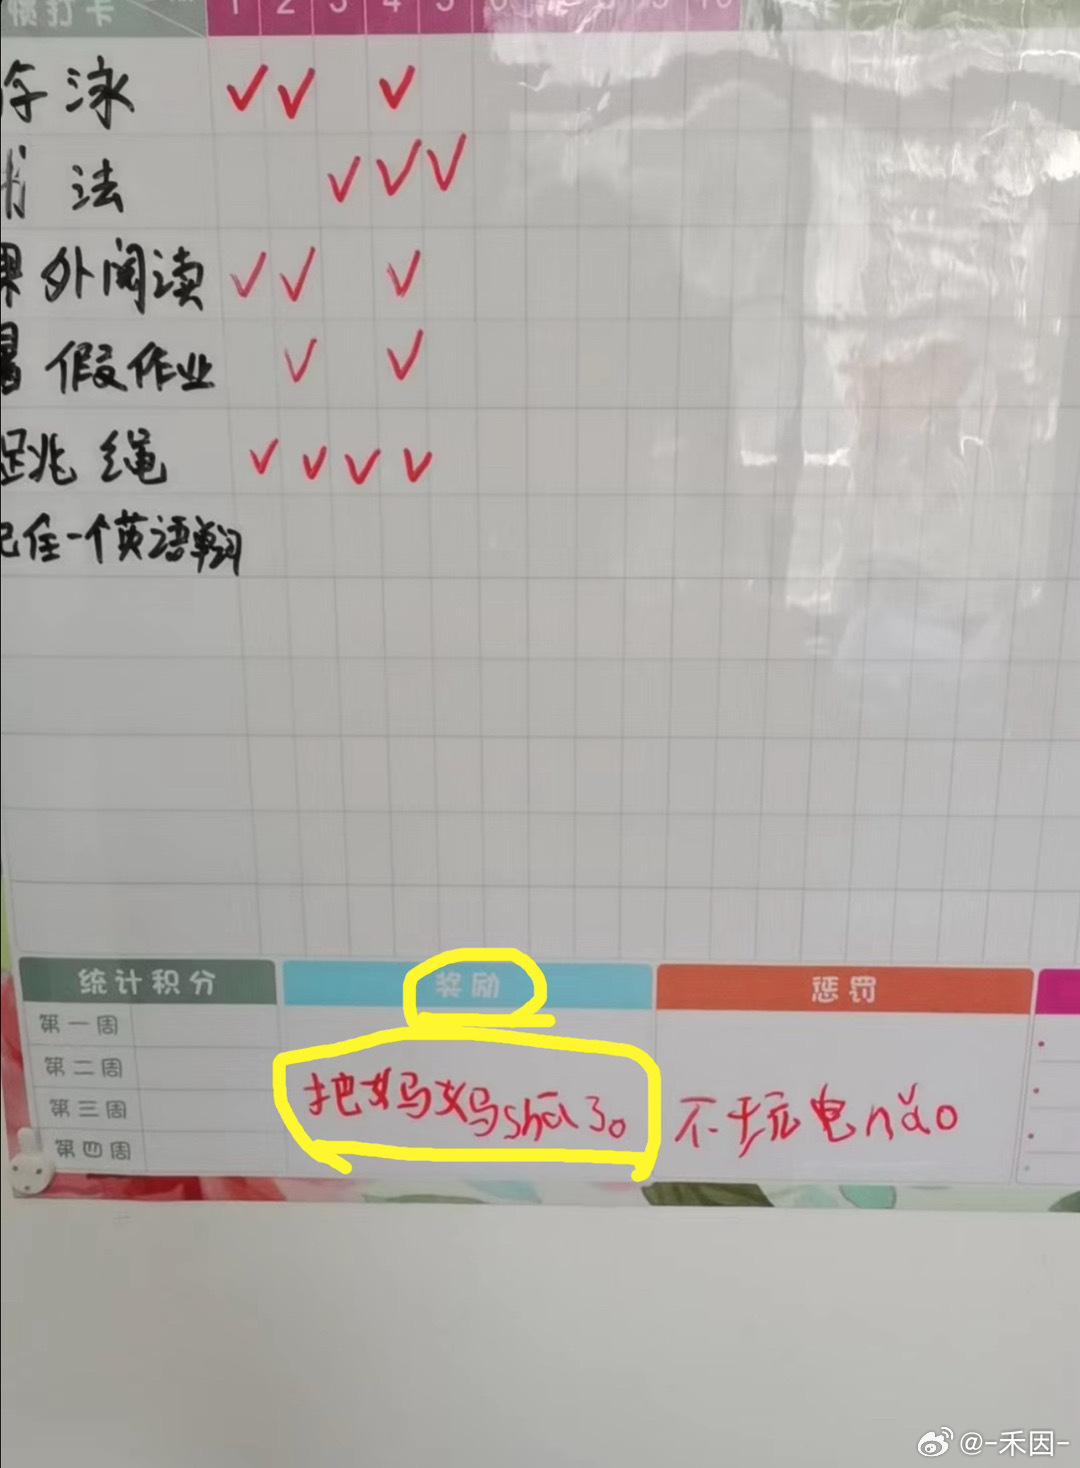 惯打卡
1 2 3 4 5 6 7 8 9 10
游泳
书法
课外阅读
暑假作业
跳绳
记住一个英语单词
统计积分 奖励 惩罚
第一周
第二周
第三周
第四周
把妈妈shā了。
不玩电nǎo
@-禾因-